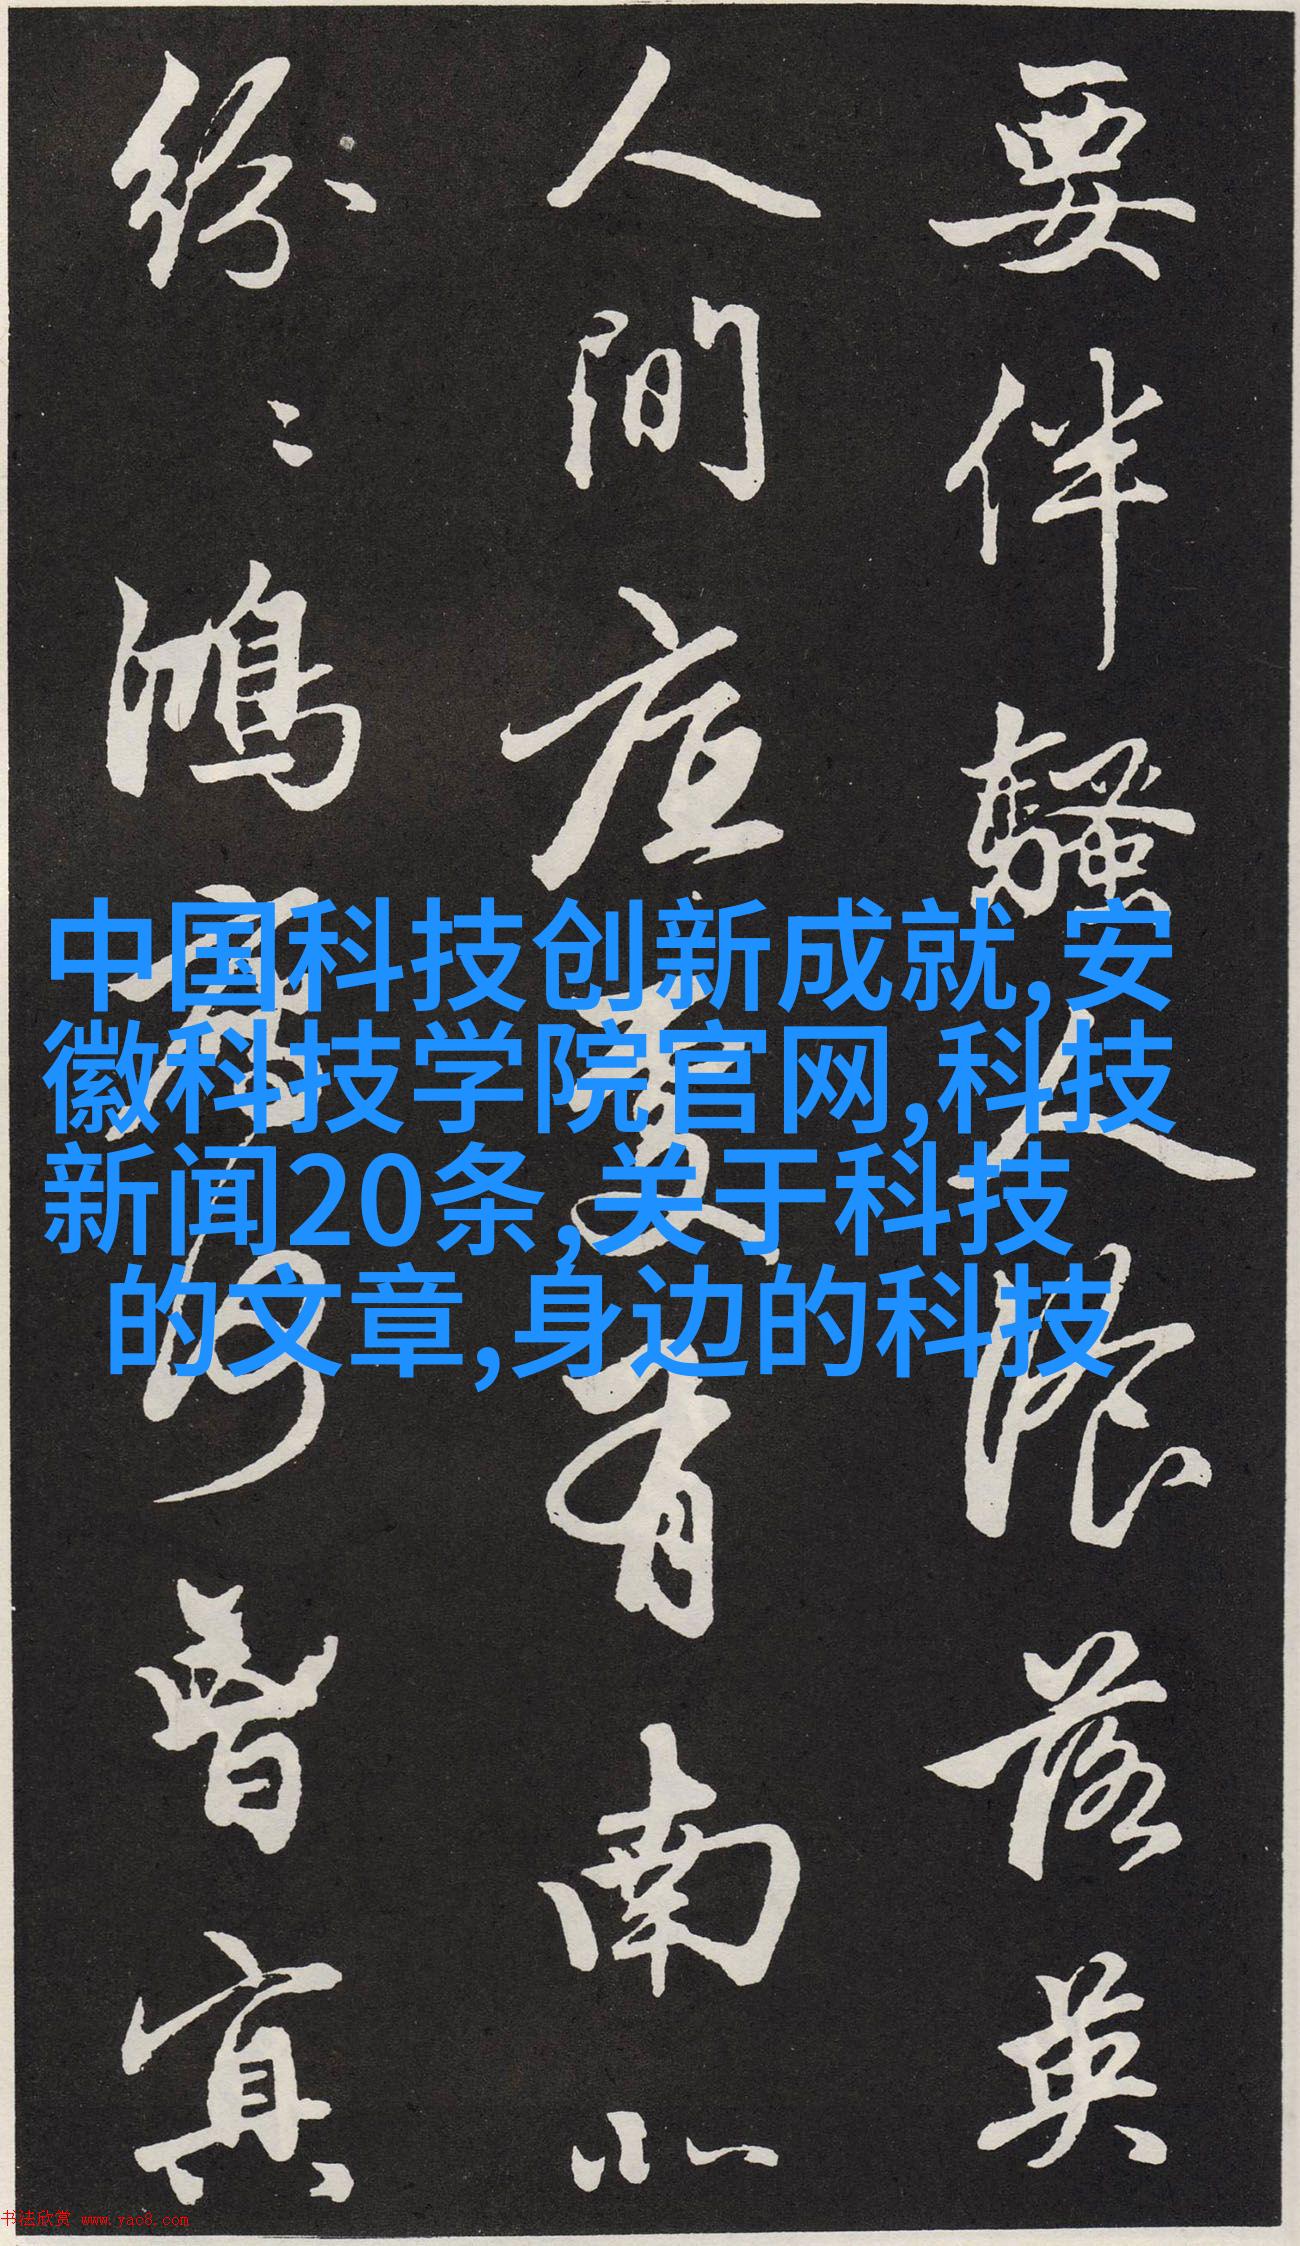 要伴騷人湌落英
人間底處有南北
紛〻鴻鴈何曾冥
中国科技创新成就,安
徽科技学院官网,科技
新闻20条,关于科技
的文章,身边的科技
书法欣赏 www.yac8.com